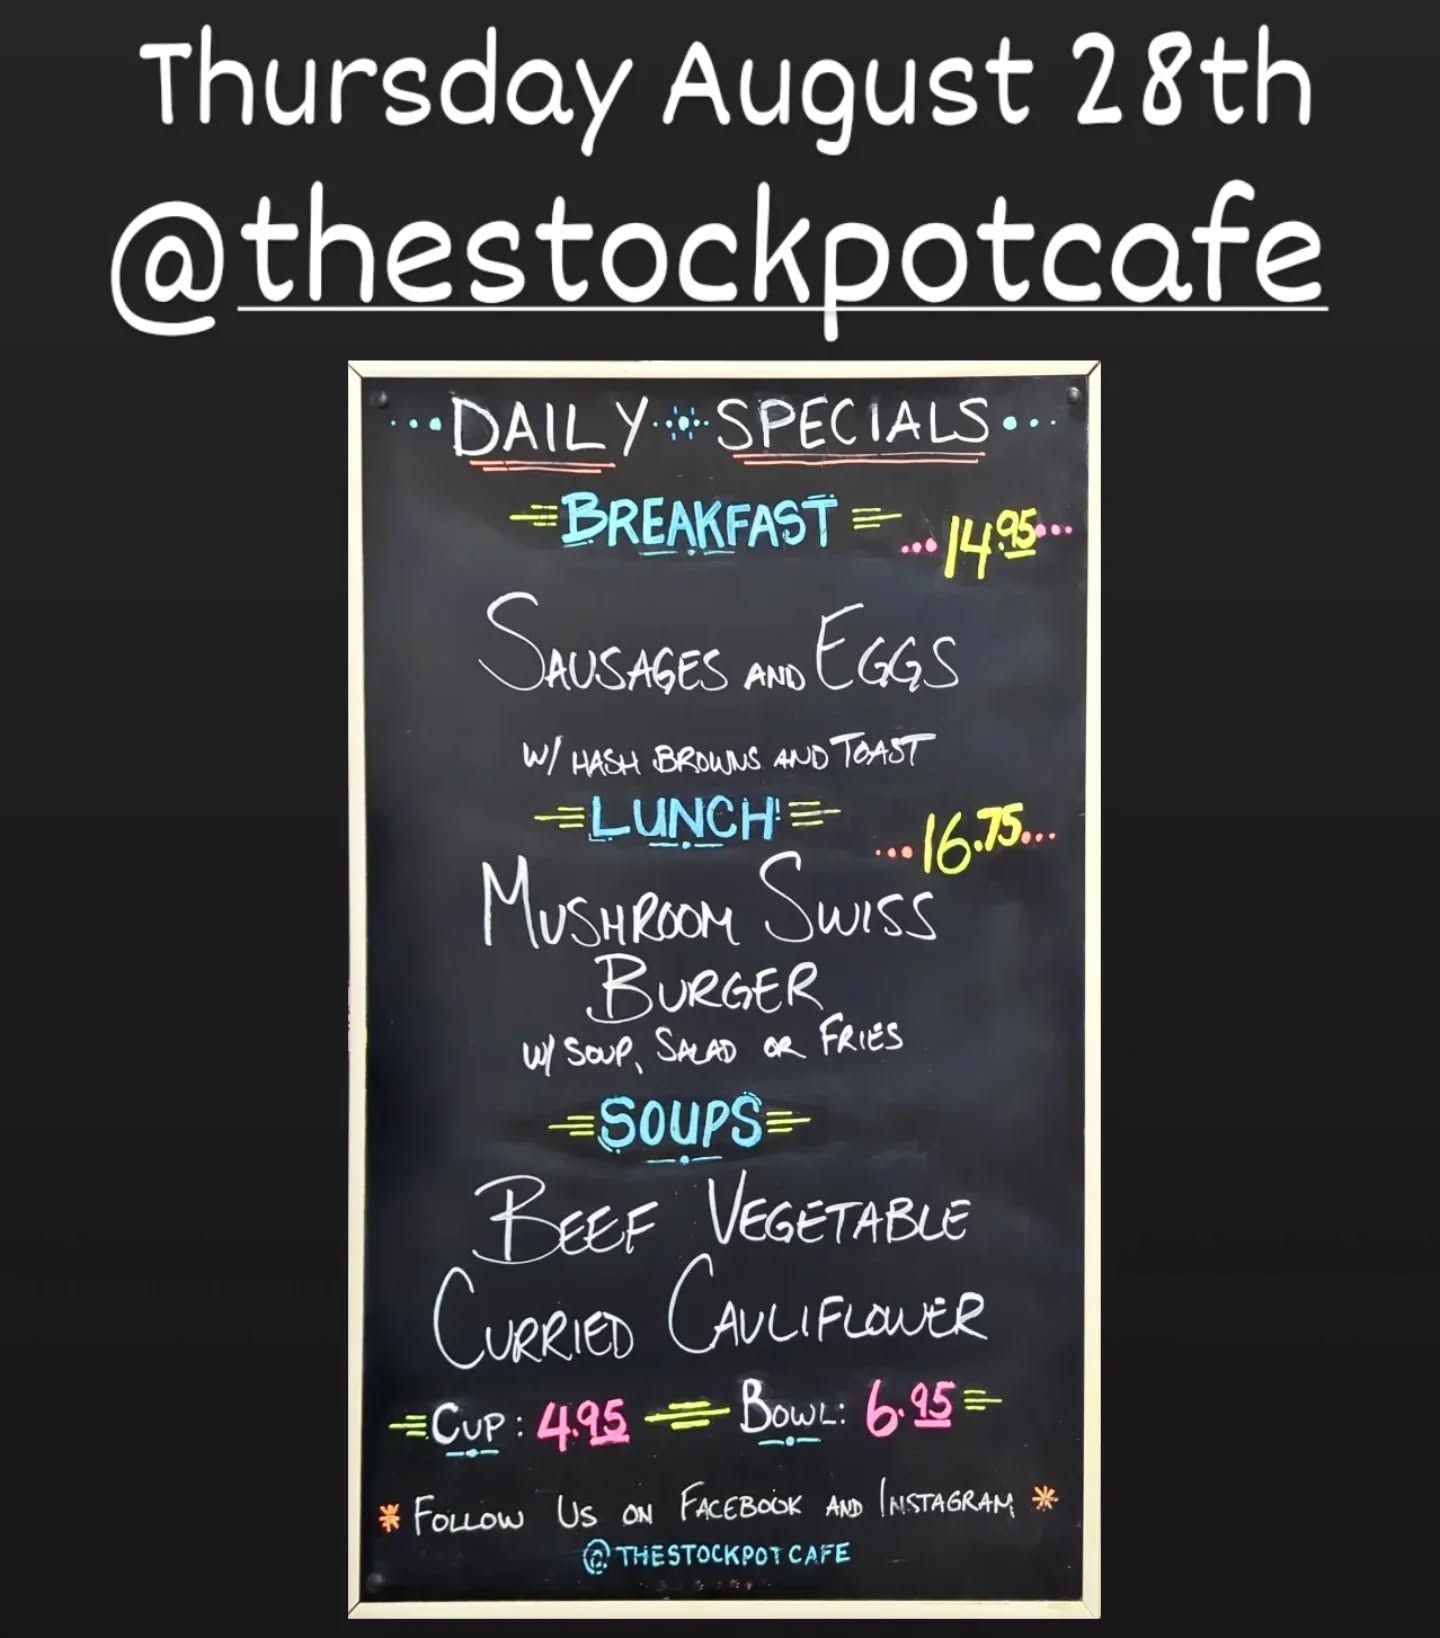 Thursday August 28th
@thestockpotcafe
DAILY SPECIALS
BREAKFAST 14.95
SAUSAGES AND EGGS
W/ HASH BROWNS AND TOAST
LUNCH 16.75
MUSHROOM SWISS
BURGER
W/ SOUP, SALAD OR FRIES
SOUPS
BEEF VEGETABLE
CURRIED CAULIFLOWER
CUP: 4.95 BOWL: 6.95
* FOLLOW US ON FACEBOOK AND INSTAGRAM *
@THESTOCKPOTCAFE